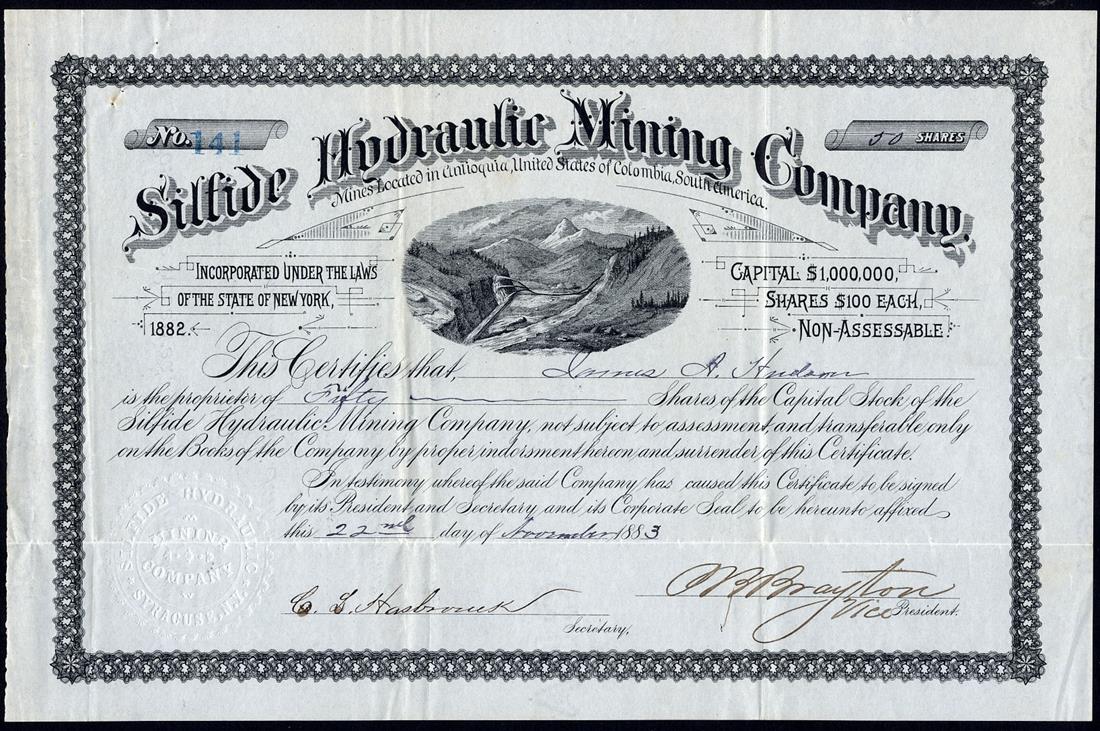 No. 141
50 SHARES
Silfide Hydraulic Mining Company.
Mines Located in Antioquia, United States of Colombia, South America.
INCORPORATED UNDER THE LAWS
OF THE STATE OF NEW YORK,
1882.
CAPITAL $1,000,000,
SHARES $100 EACH,
NON-ASSESSABLE.
This Certifies that, James A. Hudson
is the proprietor of Fifty Shares of the Capital Stock of the
Silfide Hydraulic Mining Company, not subject to assessment, and transferable only
on the Books of the Company by proper indorsment hereon and surrender of this Certificate.
In testimony whereof the said Company has caused this Certificate to be signed
by its President and Secretary, and its Corporate Seal to be hereunto affixed
this 22nd day of November 1883
SILFIDE HYDRAULIC
MINING
COMPANY
SYRACUSE, N.Y.
C. L. Hasbrouck
Secretary.
Brayton
Vice President.